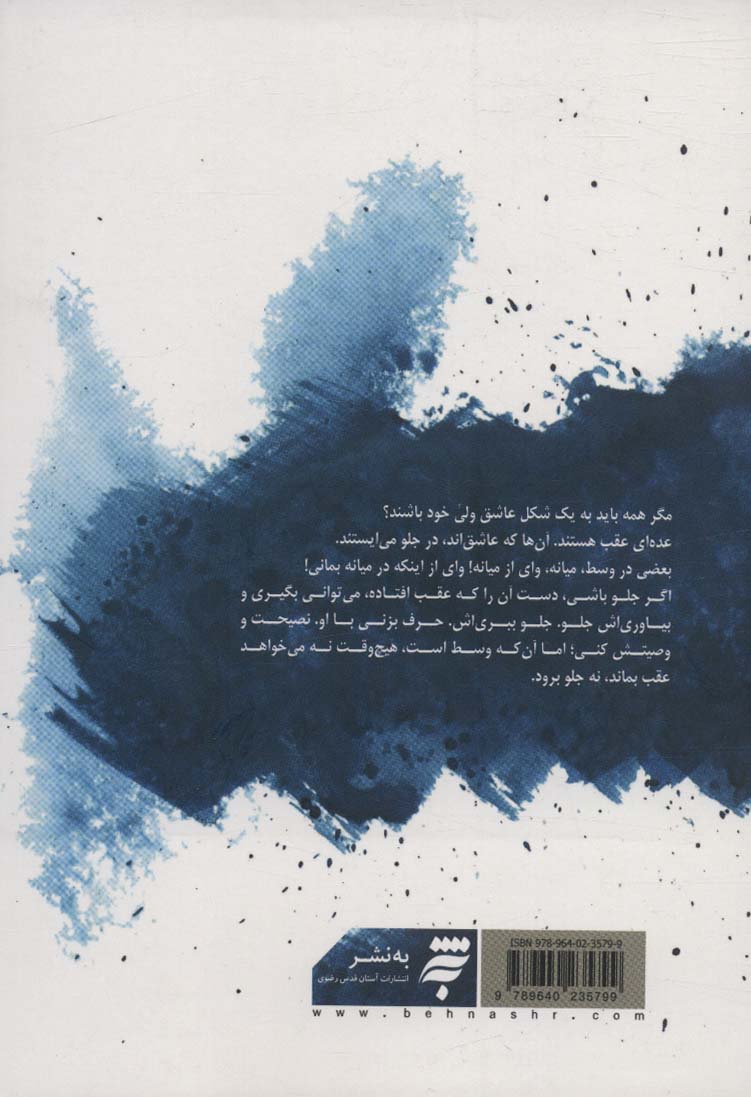 مگر همه باید به یک شکل عاشق ولیِ خود باشند؟
عده‌ای عقب هستند. آن‌ها که عاشق‌اند، در جلو می‌ایستند.
بعضی در وسط، میانه، وای از میانه! وای از اینکه در میانه بمانی!
اگر جلو باشی، دست آن را که عقب افتاده، می‌توانی بگیری و
بیاوری‌اش جلو. جلو ببری‌اش. حرف بزنی با او. نصیحت و
وصیتش کنی؛ اما آن‌که وسط است، هیچ‌وقت نه می‌خواهد
عقب بماند، نه جلو برود.
ISBN 978-964-02-3579-9
9 789640 235799
به‌نشر
انتشارات آستان قدس رضوی
www.behnashr.com